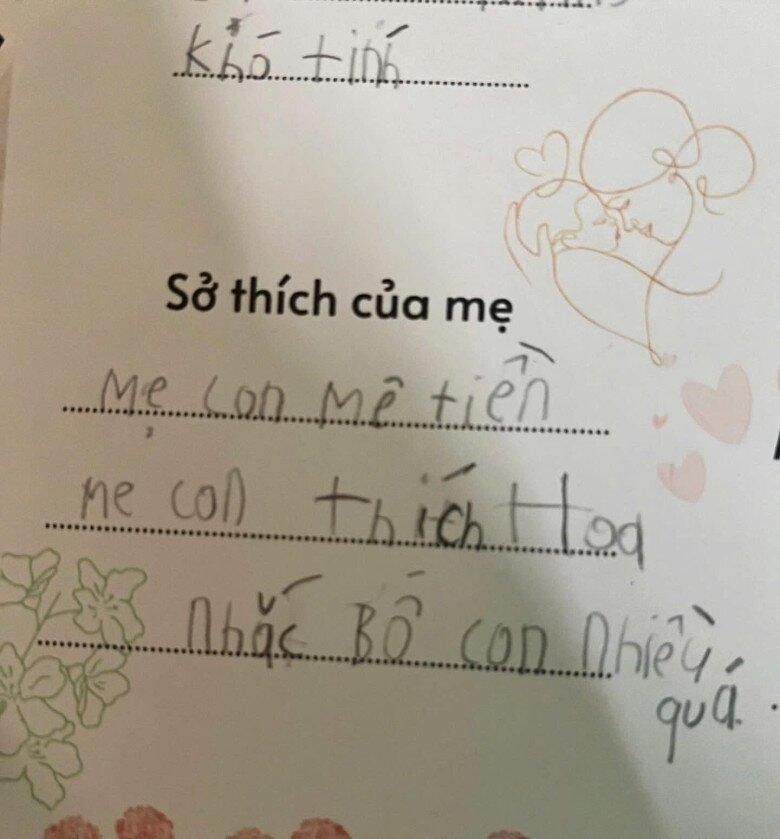 khó tính
Sở thích của mẹ
Mẹ con mê tiền
mẹ con thích Hoa
nhắc Bố con nhiều
quá.